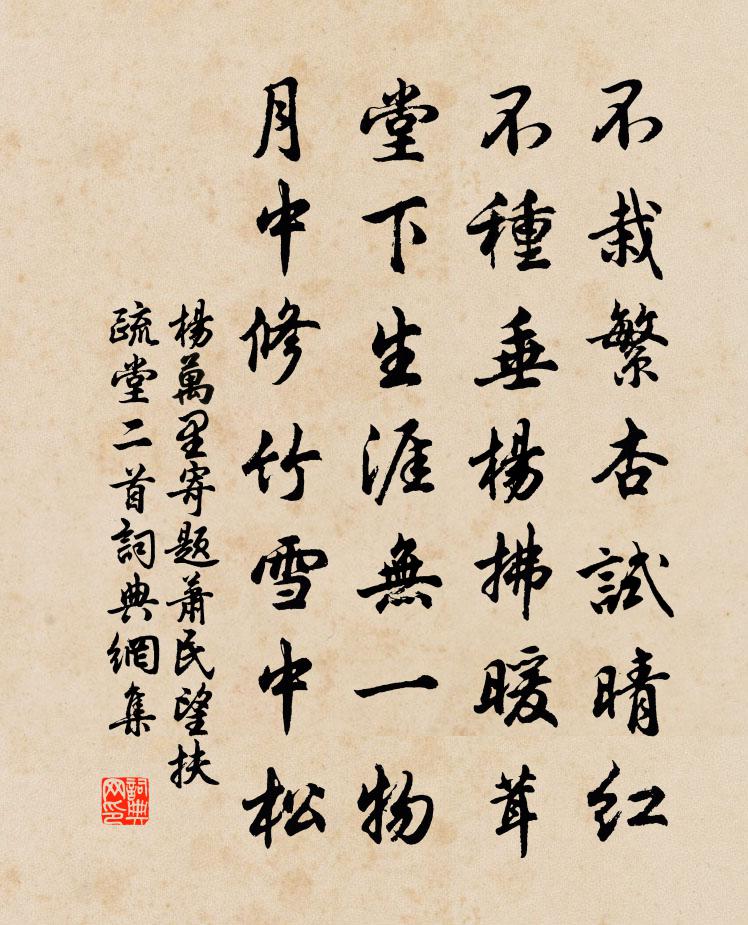 不栽繁杏試晴紅
不種垂楊拂暖茸
堂下生涯無一物
月中修竹雪中松
楊萬里寄題蕭民望扶
疏堂二首詞典網集
詞典
网印